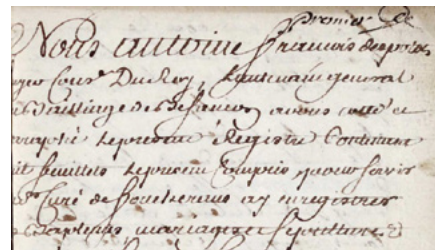 Premier
Nous Antoine François despotots
Coner Du Roy, Lieutenant general
Bailliage de Besancon avons cotté et
paraphé le present Registre Contenant
huit feuillets le present Compris pour servir
Curé de a y enregistrer
Baptemes mariages et sepultures